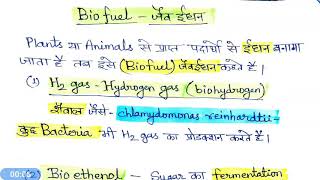 Biofuel - जैव ईंधन
Plants या Animals से प्राप्त पदार्थों से ईंधन बनाया
जाता है तब इसे (Biofuel) जैवईंधन कहते है।
(1) H₂ gas - Hydrogen gas (biohydrogen)
शैवाल जैसे - chlamydomonas reinhardtii -
कुछ Bacteria भी H₂ gas का प्रोडक्शन करते हैं।
00:00
Bioethenol - Sugar का fermentation